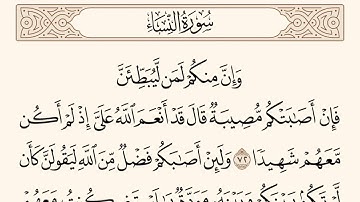 سُورَةُ النِّسَاءِ
وَإِنَّ مِنكُمْ لَمَن لَّيُبَطِّئَنَّ
فَإِنْ أَصَابَتْكُم مُّصِيبَةٌ قَالَ قَدْ أَنْعَمَ اللَّهُ عَلَيَّ إِذْ لَمْ أَكُن
مَّعَهُمْ شَهِيدًا ٧٢ وَلَئِنْ أَصَابَكُمْ فَضْلٌ مِّنَ اللَّهِ لَيَقُولَنَّ كَأَن